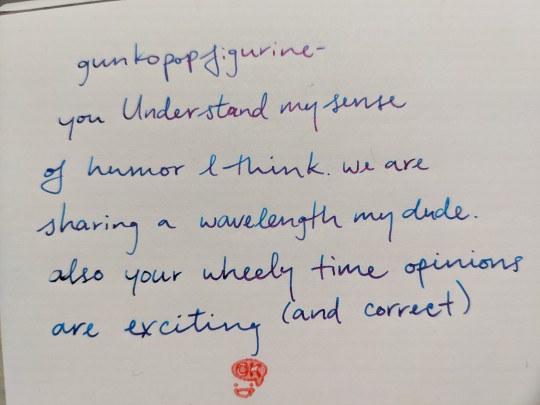 gunkopopfigurine-
you Understand my sense
of humor I think. we are
sharing a wavelength my dude.
also your wheely time opinions
are exciting (and correct)